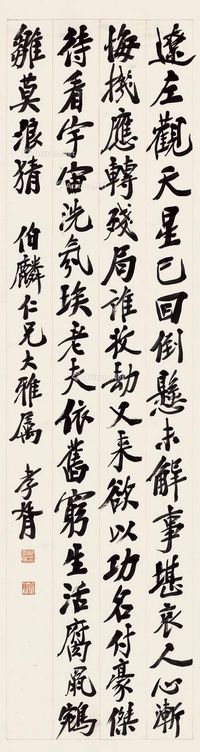 遼左觀天星已回倒懸未解事堪哀人心漸
悔機應轉殘局誰收劫又来欲以功名付豪傑
待看宇宙洗氛埃老夫依舊窮生活腐鼠鵷
雛莫浪猜 伯麟仁兄大雅属 孝胥